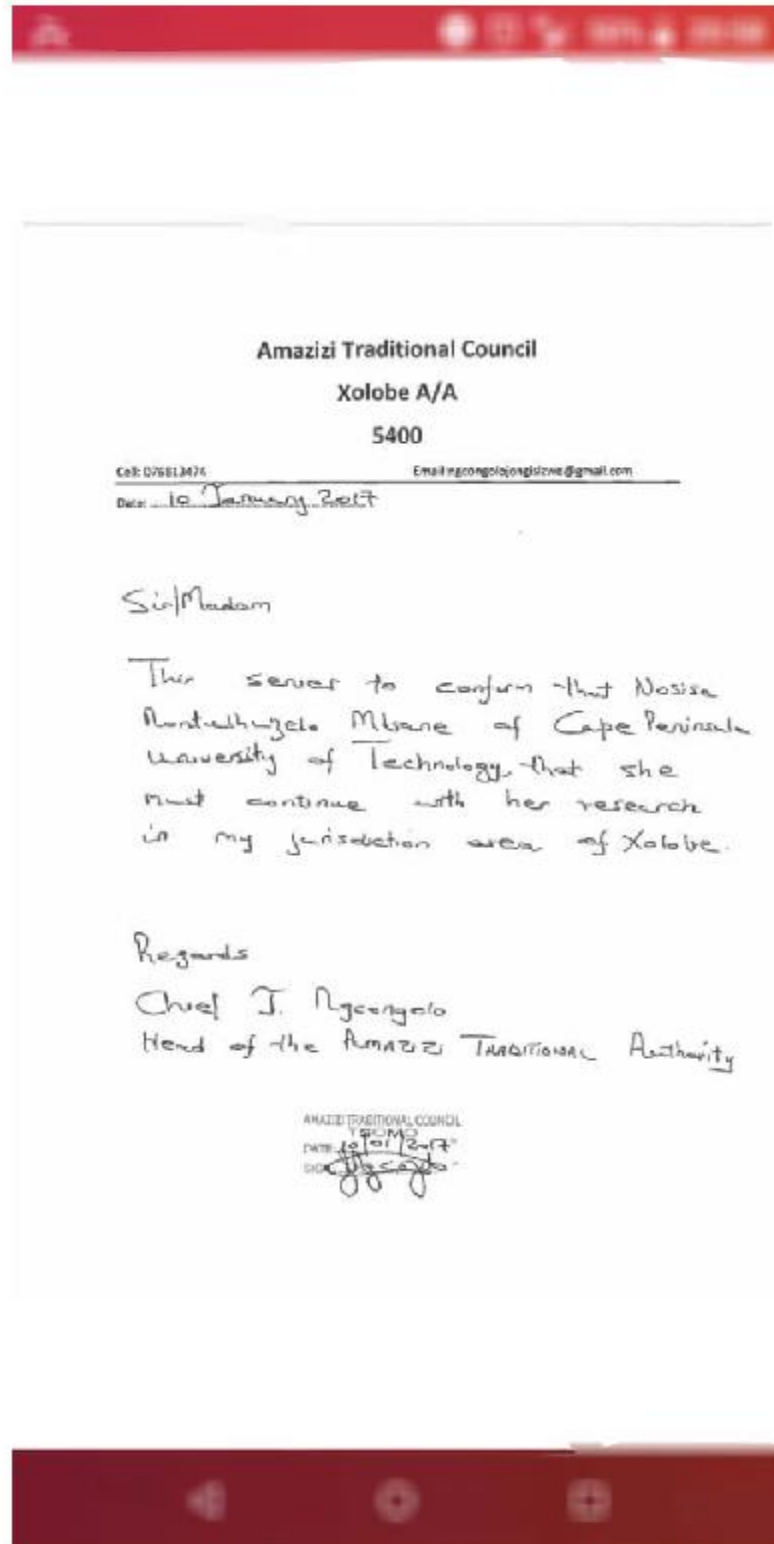 Amazizi Traditional Council
Xolobe A/A
5400
Cell: 076813474 Email:ngcongolojongisizwe@gmail.com
Date: 10 January 2017
Sir/Madam
This serves to confirm that Nosisa
of Cape Peninsula
University of Technology, that she
must continue with her research
in my jurisdiction area of Xolobe.
Regards
Chief J. Ngcongolo
Head of the AMAZIZI TRADITIONAL Authority
AMAZIZI TRADITIONAL COUNCIL
TSOMO
DATE: 10/01/2017